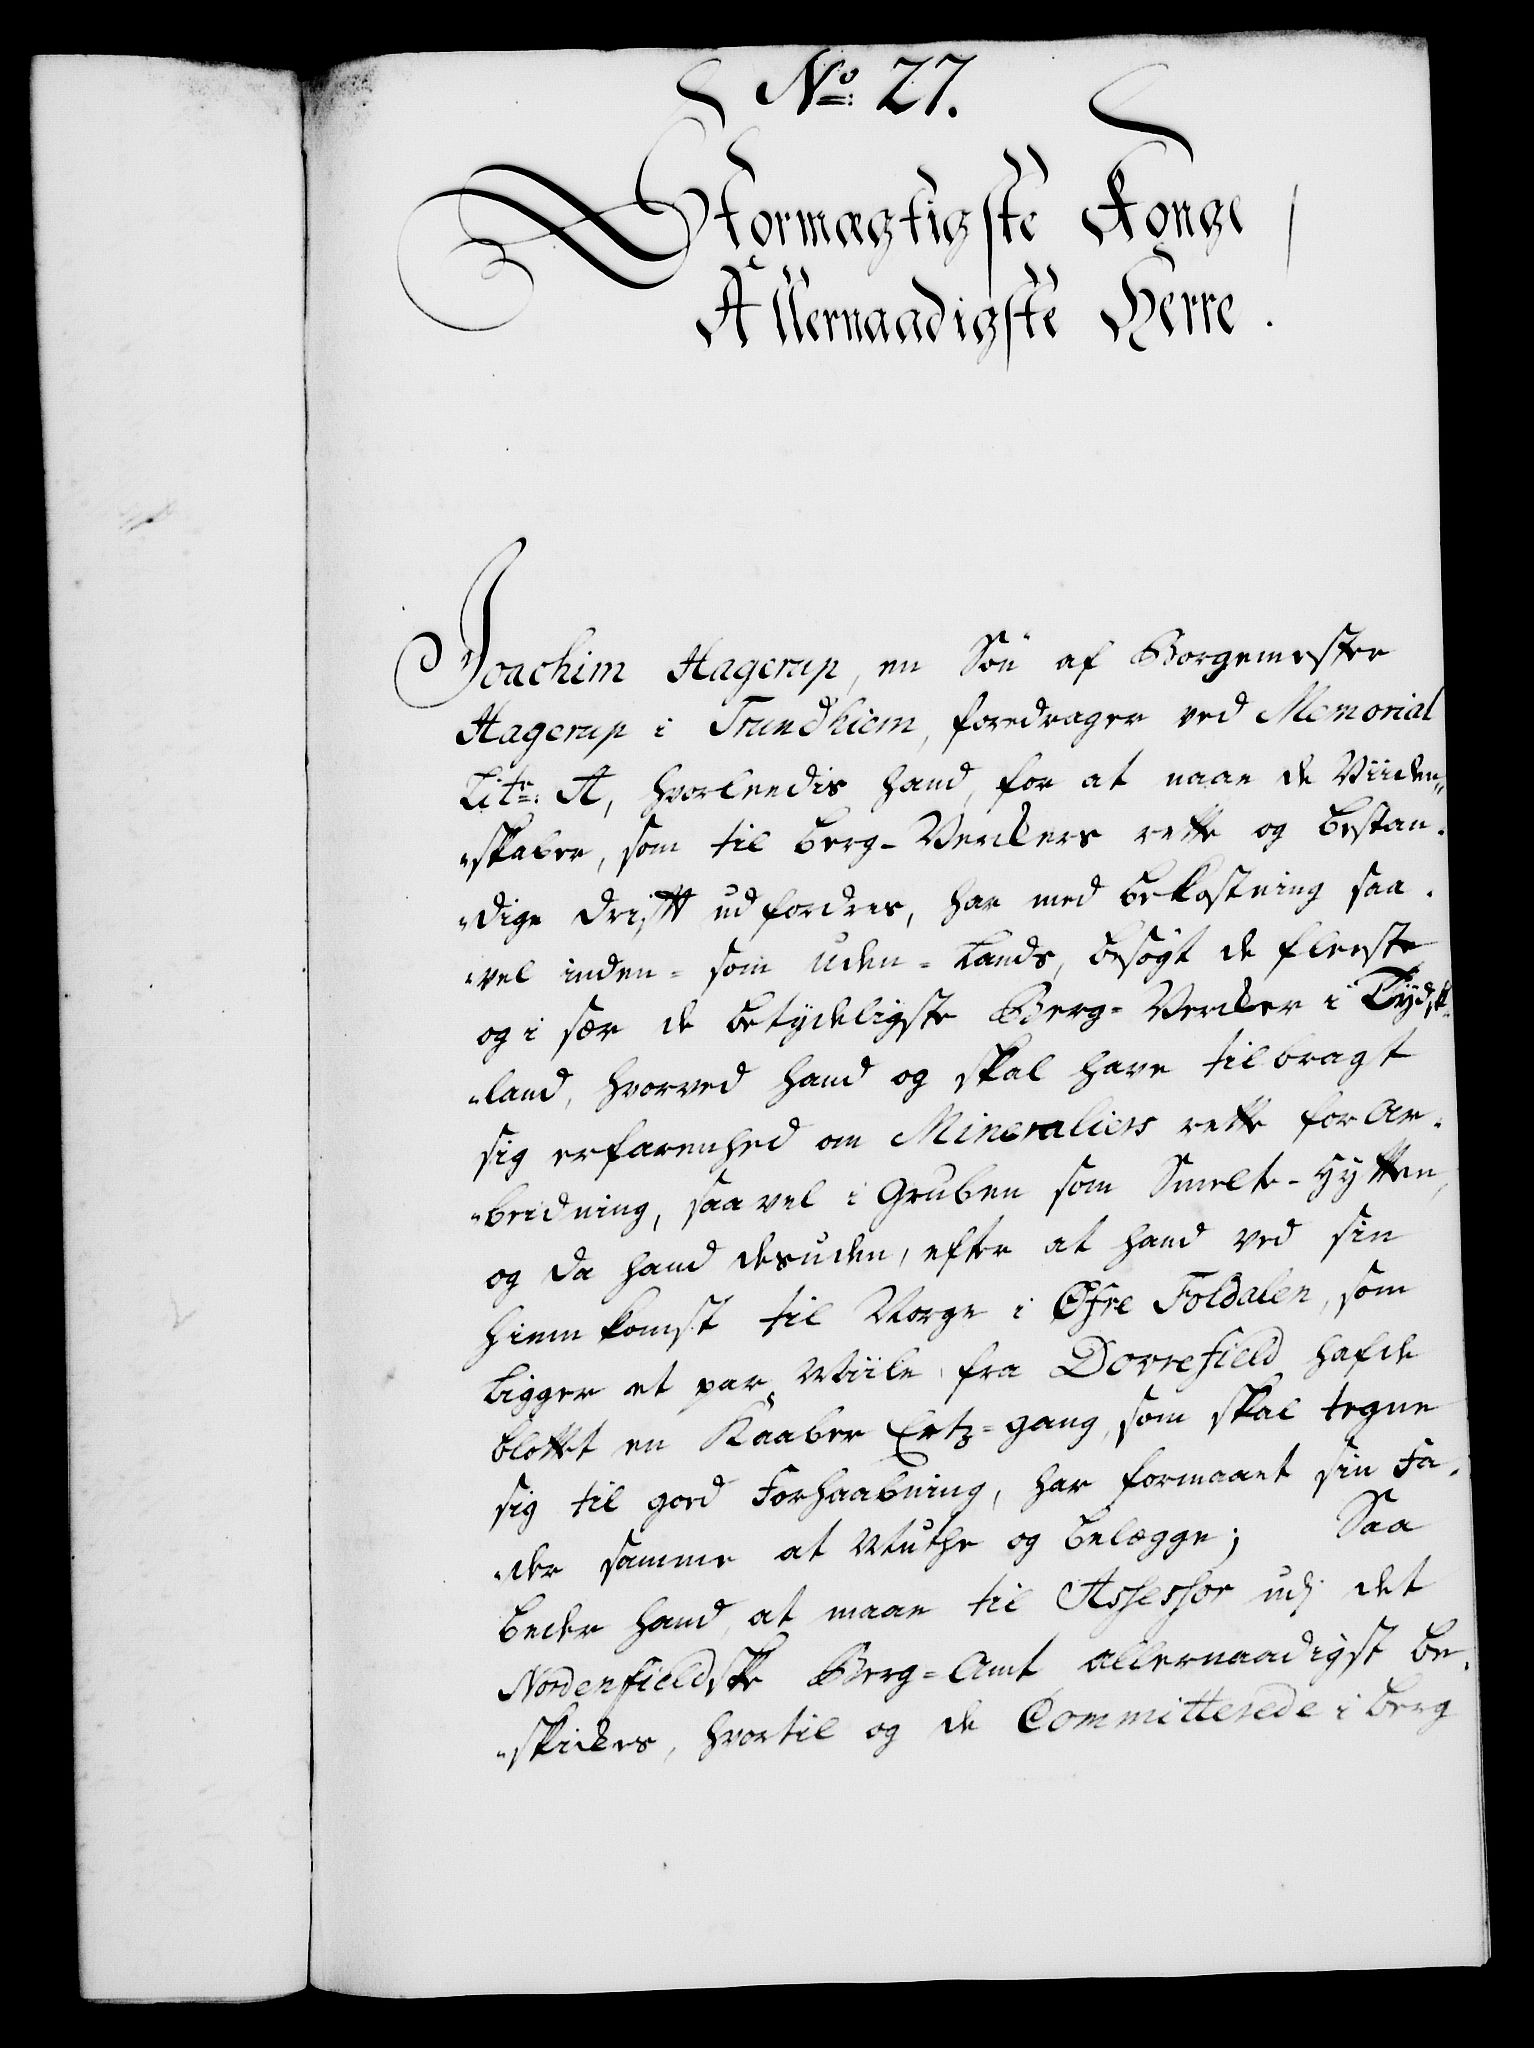 No: 27.
Stormægtigste Konge
Allernaadigste Herre.
Joachim Hagerup, en Søn af Borgemester
Hagerup i Trundhiem, foredrager ved Memorial
Litr: A, hvorleedis hand, for at naae de Viiden„
„skaber, som til Berg-Verckers rette og bestan„
„dige Drifft udfordres, har med bekostning saa„
„vel inden- som uden-Lands, besøgt de fleeste
og i sær de betydeligste Berg-Vercker i Tydsk„
„land, hvorved hand og skal have tilbragt
sig erfarenhed om Mineraliers rette forAr„
„beidning, saavel i Gruben som Smelte-Hytten,
og da hand desuden, efter at hand ved sin
Hiemkomst til Norge i Øfre Foldalen, som
ligger et par Miile fra Dovrefield hafde
blottet en Kaaber Ertz-gang, som skal tegne
sig til goed Forhaabning, har formaaet sin Fa„
„der samme at Muthe og belægge; Saa
beder hand, at maae til Assessor udj det
Nordenfieldske Berg-Amt allernaadigst be„
„skickes, hvortil og de Committerede i Berg